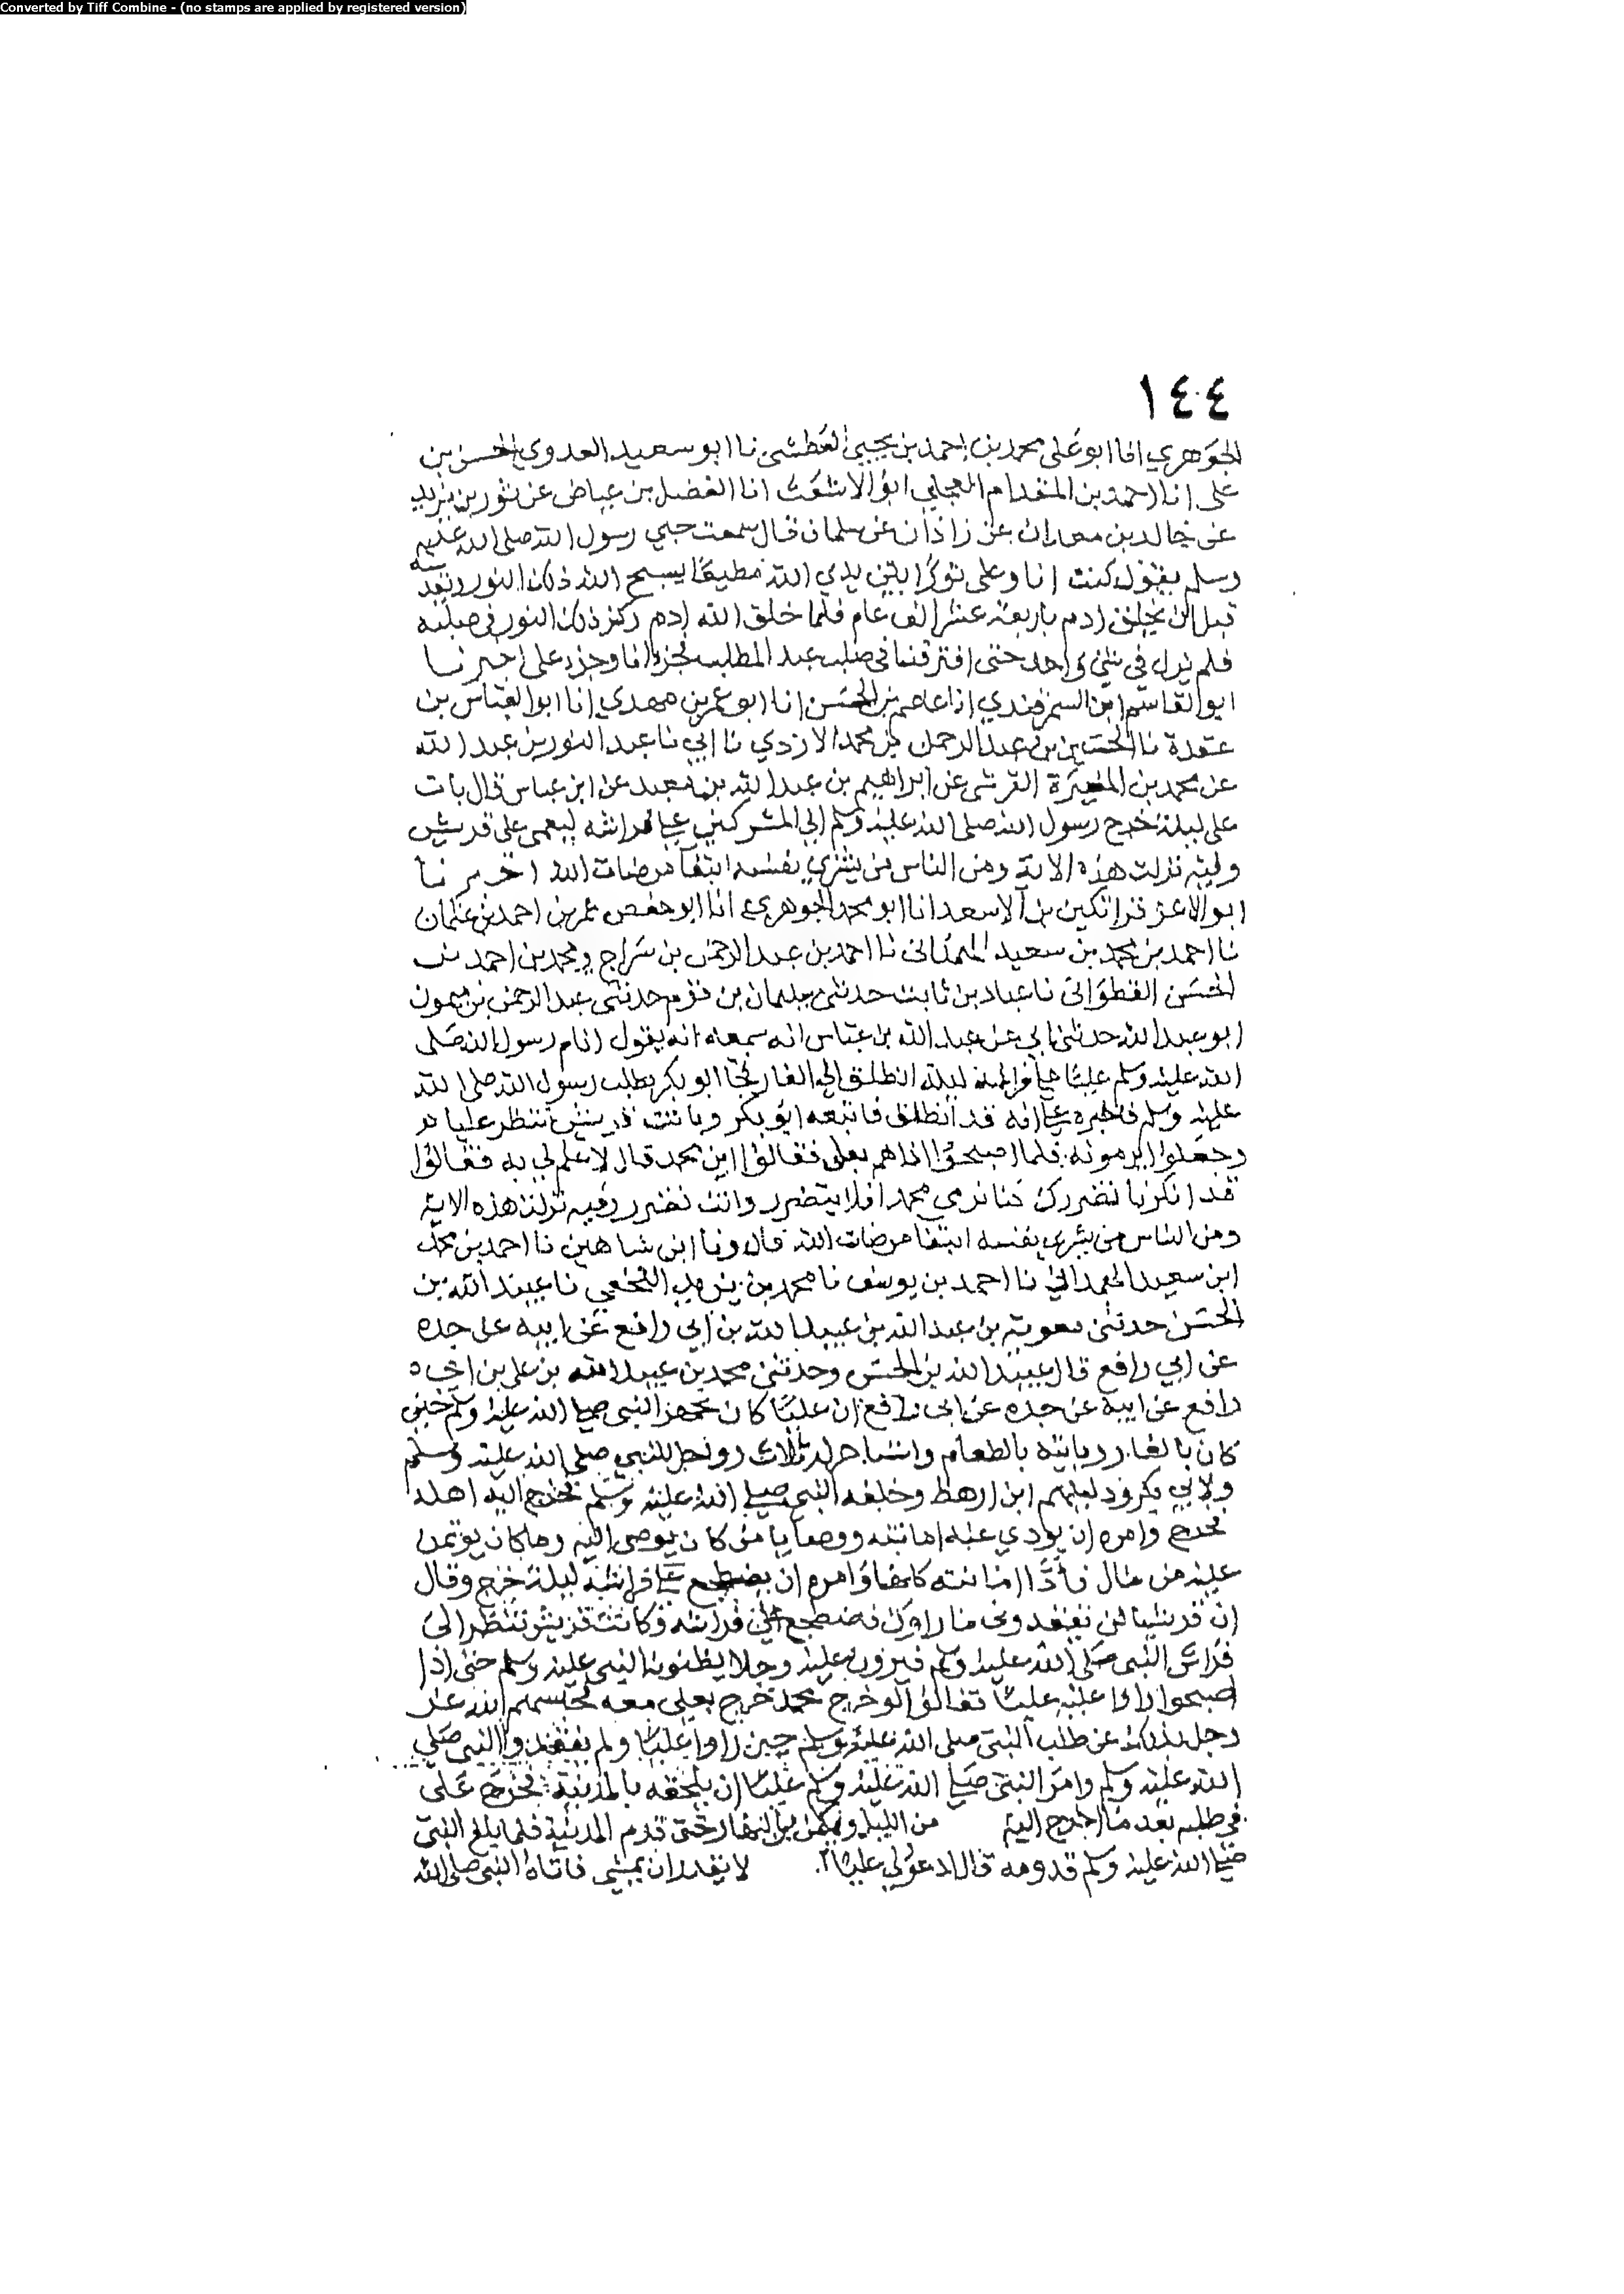 Converted by Tiff Combine - (no stamps are applied by registered version)
١٤٤
الجوهري انا ابو على محمد بن احمد بن يحيى العطشى نا ابو سعيد العدوي الحسن بن
على انا احمد بن المقدام العجلي ابو الاشعث انا الفضل بن عياض عن ثور بن يزيد
عن خالد بن معدان عن زاذان عن سلمان قال سمعت حبي رسول الله صلى الله عليه
وسلم يقول كنت انا وعلى نورًا بين يدي الله مطيعًا يسبح الله ذلك النور ويقدسه
قبل ان يخلق ادم باربعة عشر الف عام فلما خلق الله ادم ركز ذلك النور في صلبه
فلم نزل في شئ واحد حتى افترقنا في صلب عبد المطلب فجزء انا وجزء على اخبرنا
ابو القاسم ابن السمرقندي انا عاصم بن الحسن انا ابو عمر بن مهدي انا ابو العباس بن
عقدة نا الحسين بن عبد الرحمن بن محمد الازدي نا ابي نا عبد النور بن عبد الله
عن محمد بن المغيرة القرشى عن ابراهيم بن عبد الله بن معبد عن ابن عباس قال بات
على ليلة خرج رسول الله صلى الله عليه وسلم الي المشركين على فراشه ليعمى على قريش
وفيه نزلت هذه الاية ومن الناس من يشري نفسه ابتغا مرضات الله اخبرنا
ابو الاعز قراتكين بن الاسعد انا ابو محمد الجوهري انا ابو حفص عمر بن احمد بن عثمان
نا احمد بن محمد بن سعيد الهمدانى نا احمد بن عبد الرحمن بن سراج ومحمد بن احمد بن
الحسن القطوانى نا عباد بن ثابت حدثنى سليمان بن قرم حدثنى عبد الرحمن بن ميمون
ابو عبد الله حدثنى ابي عن عبد الله بن عباس انه سمعه انه يقول انام رسول الله صلى
الله عليه وسلم عليًا على فراشه ليلة انطلق الى الغار فجا ابو بكر يطلب رسول الله صلى الله
عليه وسلم فاخبره على انه قد انطلق فاتبعه ابو بكر وباتت قريش تنظر عليا
وجعلوا يرمونه فلما اصبحوا اذا هم بعلى فقالوا اين محمد قال لا علم لي به فقالوا
قد انكرنا تضررك كنا نرمي محمدا فلا يتضرر وانت تضرر وفيه نزلت هذه الاية
ومن الناس من يشرى نفسه ابتغا مرضات الله قال ونا ابن شاهين نا احمد بن محمد
ابن سعيد الهمداني نا احمد بن يوسف نا محمد بن يزيد النخعي نا عبيد الله بن
الحسن حدثنى معوية بن عبد الله بن عبيد الله بن ابي رافع عن ابيه عن جده
عن ابي رافع قال عبيد الله بن الحسن وحدثنى محمد بن عبيد الله بن على بن ابي
رافع عن ابيه عن جده عن ابى رافع ان عليًا كان يجهز النبي صلى الله عليه وسلم حين
كان بالغار وياتيه بالطعام واستاجر له ثلاث رواحل للنبي صلى الله عليه وسلم
ولابي بكر ودليلهم ابن ارهط وخلفه النبي صلى الله عليه وسلم فخرج اليه اهله
فخرج وامره ان يودي عنه امانته ووصايا من كان يوصى اليه وما كان يوتمن
عليه من مال فأدا امانته كلها وامره ان يضطجع على فراشه ليلة خرج وقال
ان قريشا لن تفتقدوني ما راوك فاضطجع على فراشه وكانت قريش تنظر الى
فراش النبى صلى الله عليه وسلم فيرون عليه رجلا يظنونه النبى عليه وسلم حتى اذا
اصبحوا راوا عليه عليًا فقالوا لو خرج محمد خرج بعلي معه فحبسهم الله عز
وجل بذلك عن طلب النبى صلى الله عليه وسلم حين راوا عليًا ولم يفتقدوا النبى صلى
الله عليه وسلم وامر النبى صلى الله عليه وسلم عليًا ان يلحقه بالمدينة فخرج على
فى طلبه بعد ما اخرج اليه من الليل ويكمن من النهار حتى قدم المدينة فلما بلغ النبى
صلى الله عليه وسلم قدومه قال ادعو لي عليًا لا يقدر ان يمشي فاتاه النبى صلى الله